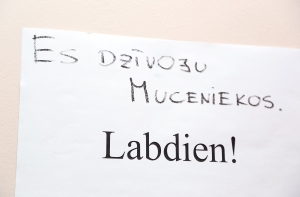 Es dzīvoju
Muceniekos.
Labdien!